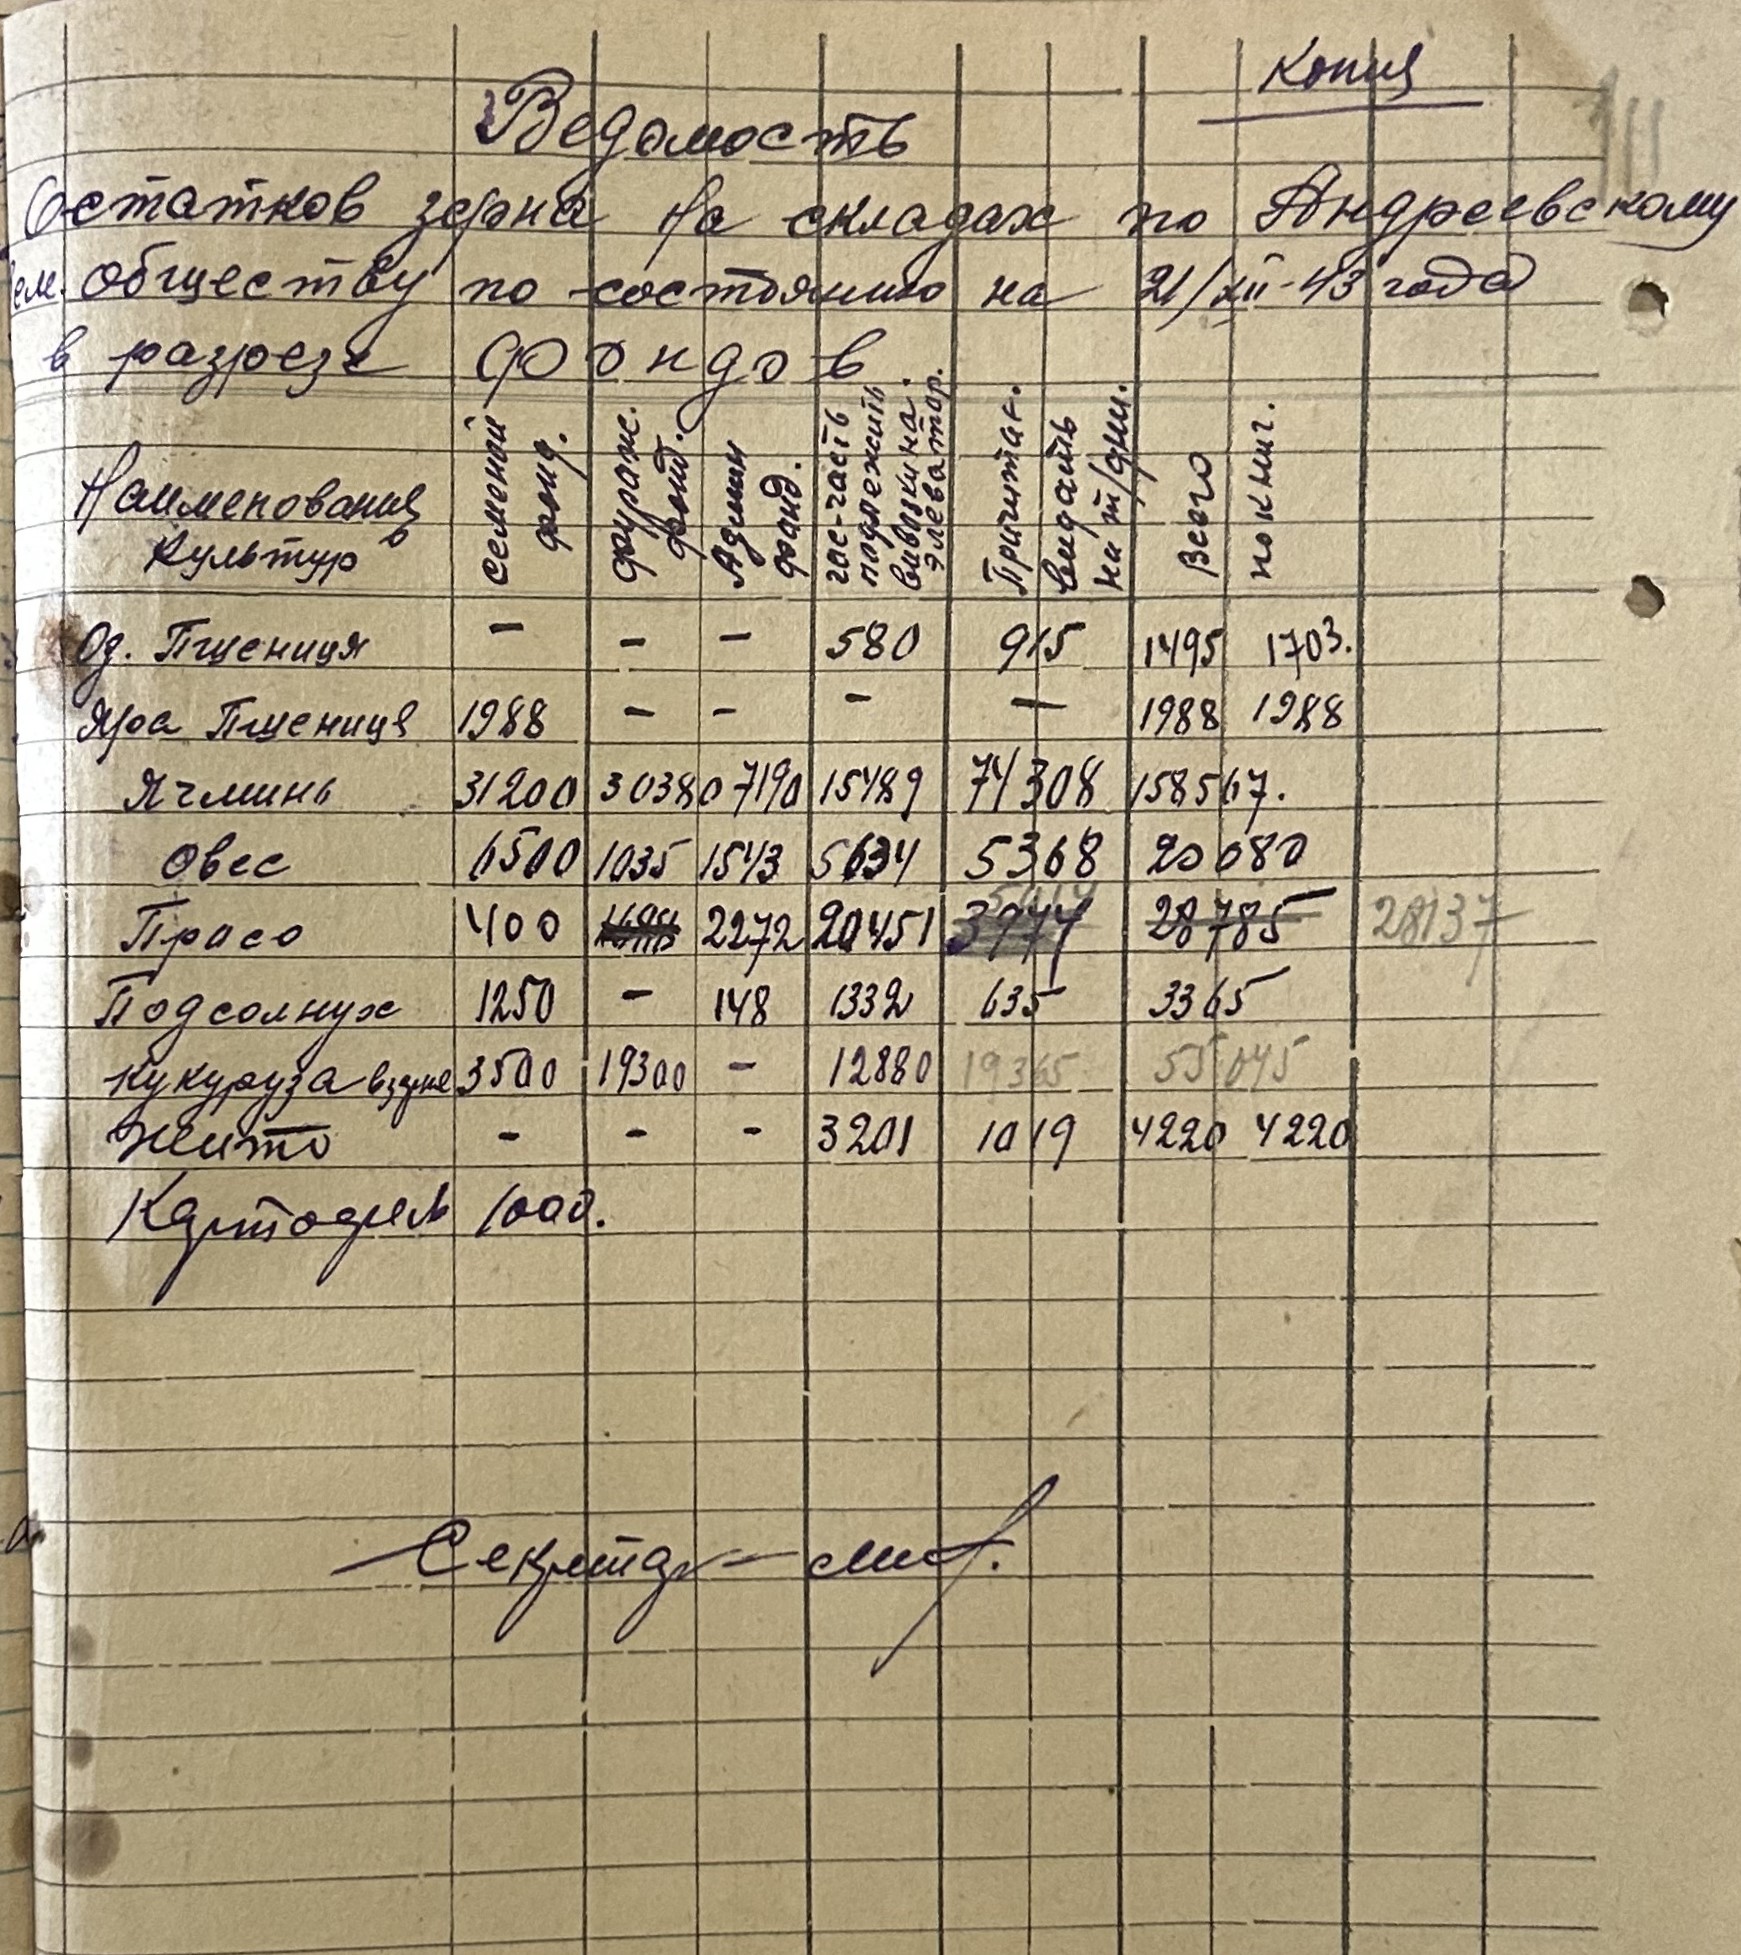 Копия
Ведомость
Остатков зерна на складах по Андреевскому
зем. обществу по состоянию на 21/XII-43 года
в разрезе фондов
Наименования Культур
Семеной фонд.
фураж. фонд.
Админ фонд.
гос-часть подлежить вивозки на элеватор.
Причитает. видать на т/дни.
Всего
по книг.
Оз. Пшениця – – – 580 915 1495 1703.
Яра Пшениця 1988 – – – – 1988 1988
Ячминь 31200 30380 7190 15489 74308 158567.
Овес 6500 1035 1543 5634 5368 20080
Прасо 400 2272 20451 28785 28137
Подсолнух 1250 – 148 1332 635 3365
Кукуруза в зерне 3500 19300 – 12880 19365 55045
Жито – – – 3201 1019 4220 4220
Картофель 1000.
Секретар